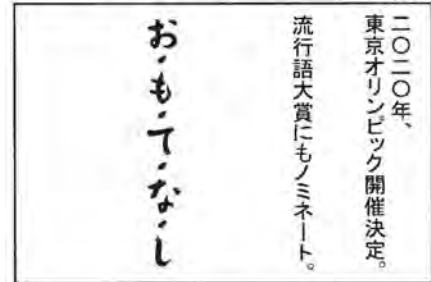 二〇二〇年、
東京オリンピック開催決定。
流行語大賞にもノミネート。
お・も・て・な・し